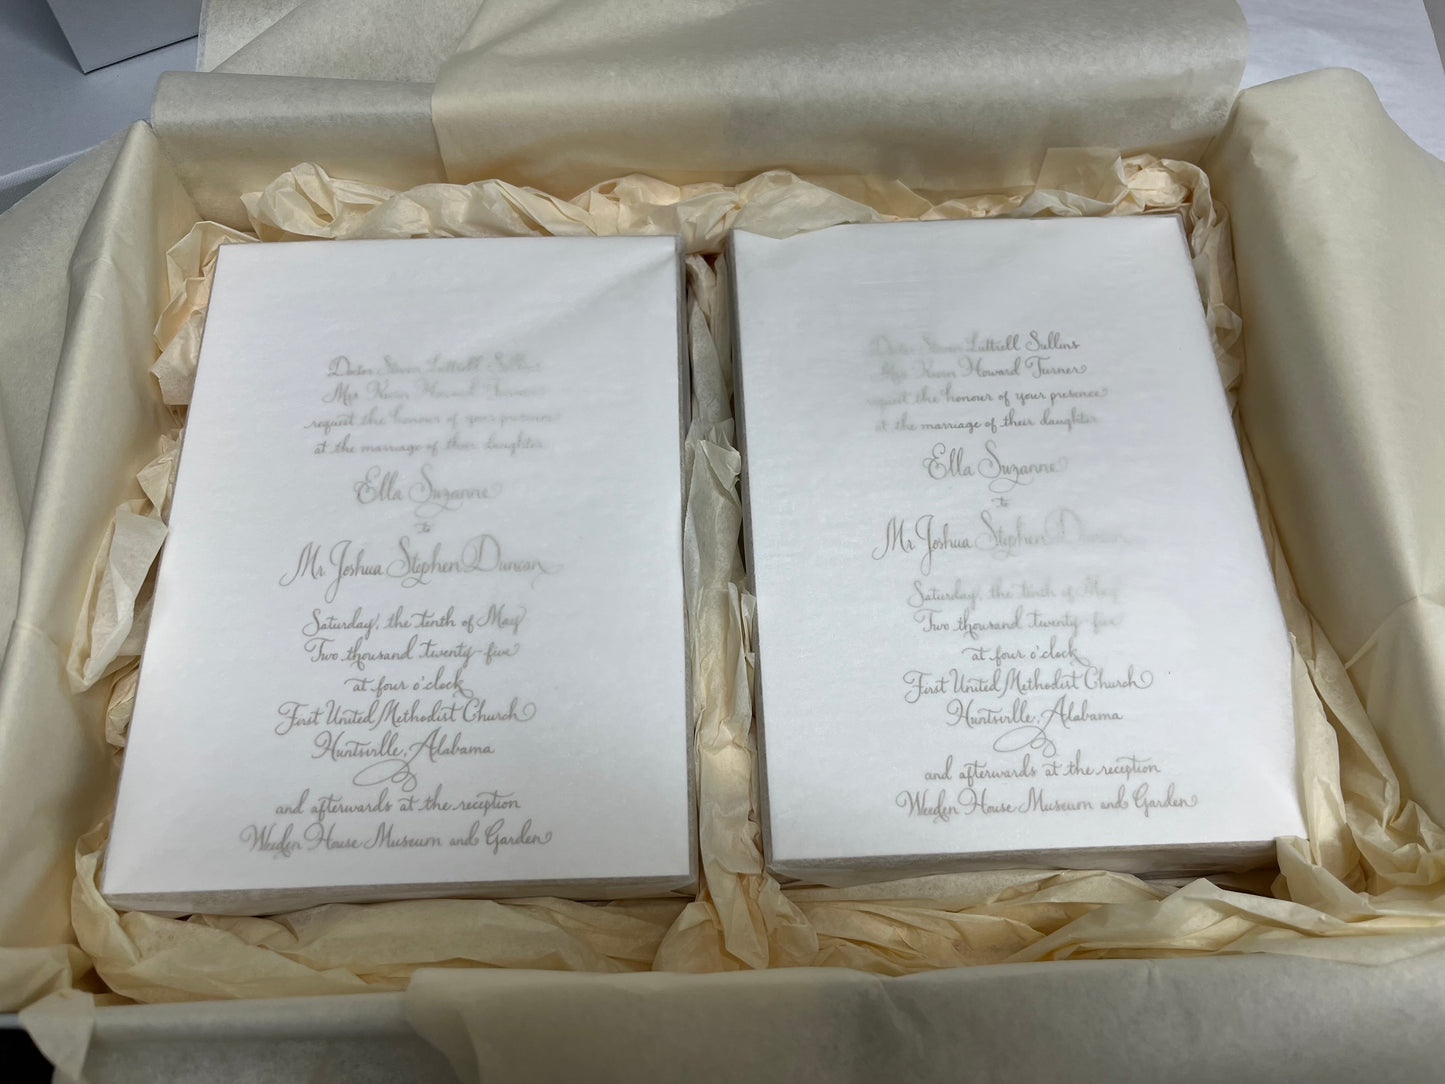 Doctor Steven Luttrell Sullins
Mrs Karen Howard Turner
request the honour of your presence
at the marriage of their daughter
Ella Suzanne
to
Mr Joshua Stephen Duncan
Saturday, the tenth of May
Two thousand twenty-five
at four o'clock
First United Methodist Church
Huntsville, Alabama
and afterwards at the reception
Weeden House Museum and Garden
Doctor Steven Luttrell Sullins
Mrs Karen Howard Turner
request the honour of your presence
at the marriage of their daughter
Ella Suzanne
to
Mr Joshua Stephen Duncan
Saturday, the tenth of May
Two thousand twenty-five
at four o'clock
First United Methodist Church
Huntsville, Alabama
and afterwards at the reception
Weeden House Museum and Garden